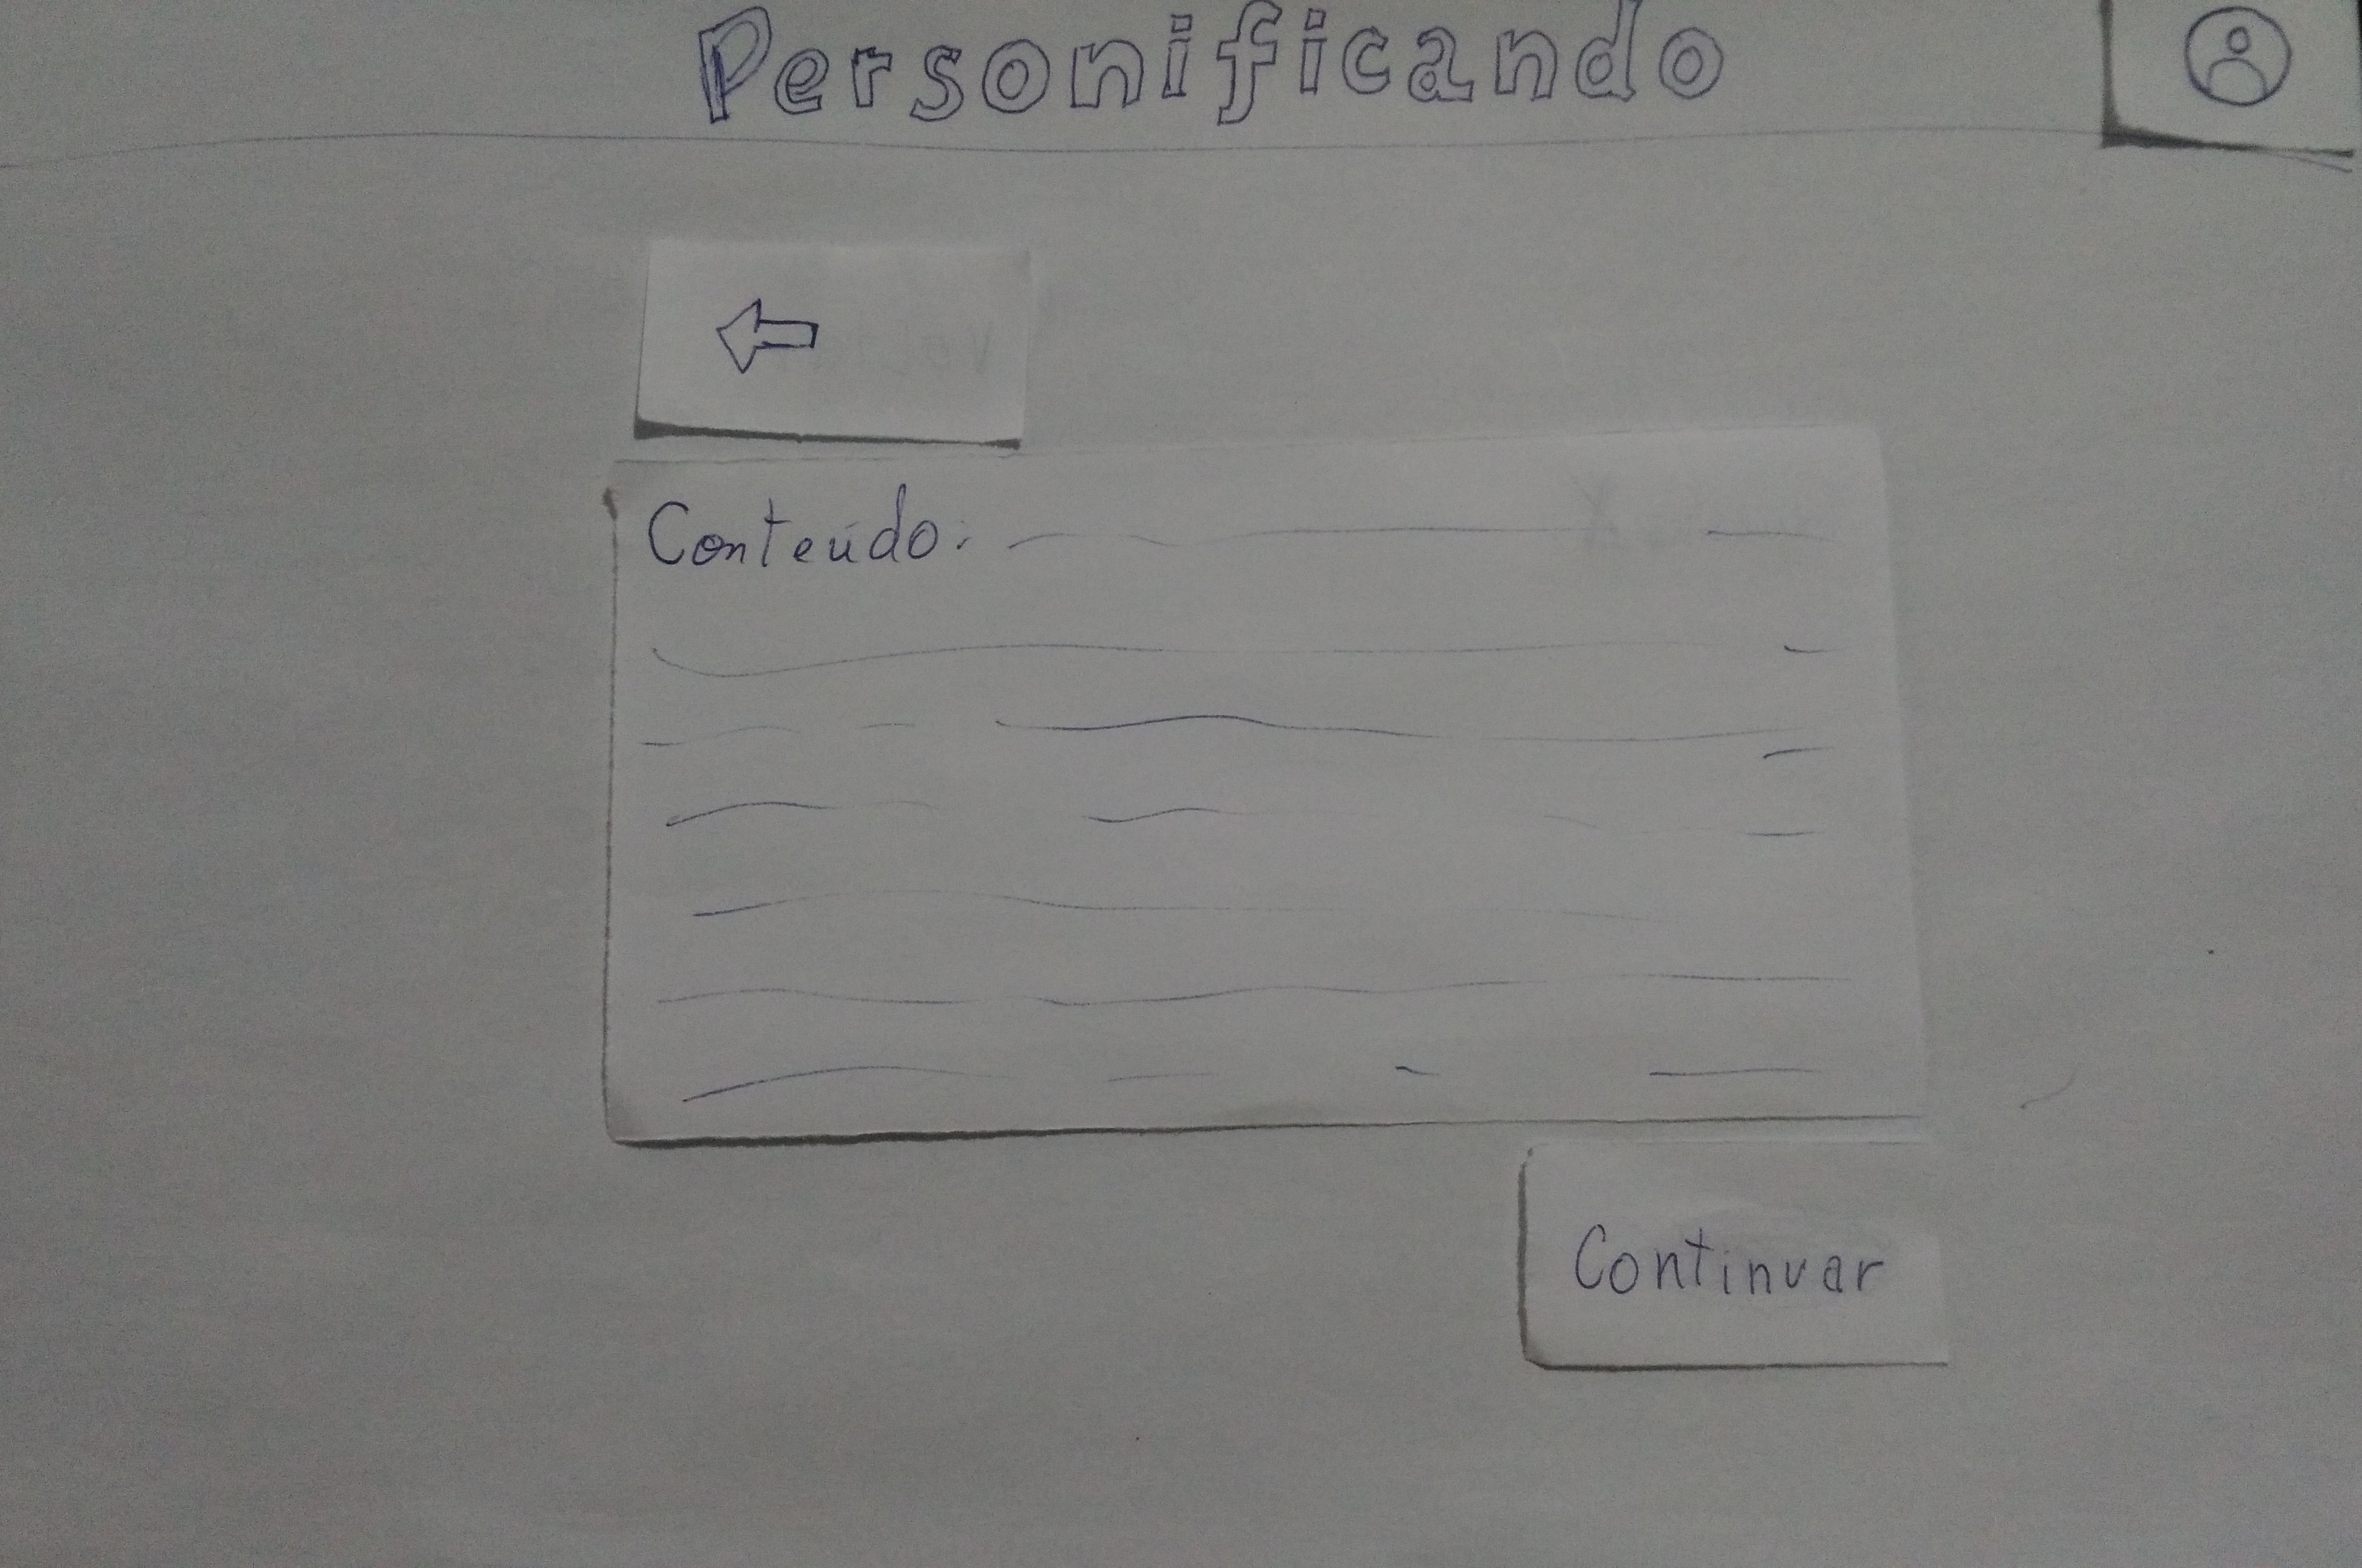 Personificando
Conteúdo:
Continuar